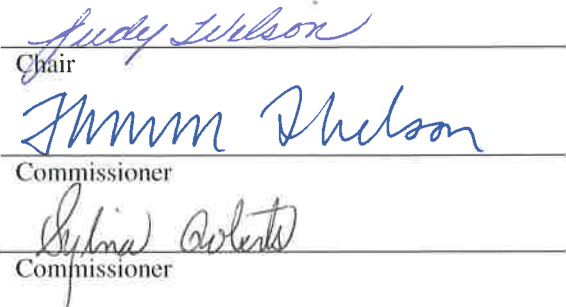 Judy Wilson
Chair
Commissioner
Sylvia Roberts
Commissioner